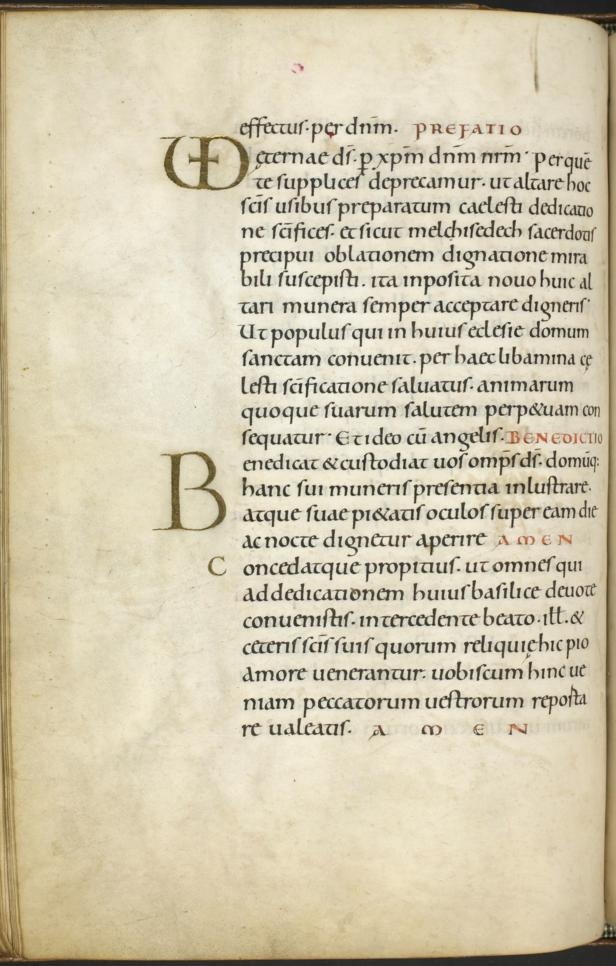 effectus. per dnm̄. PREFATIO
VD ęternae ds̄. p xpm̄ dnm̄ nrm̄. Per quē
te supplices deprecamur. ut altare hoc
scīs usibus preparatum caelesti dedicatio
ne scīfices. et sicut melchisedech sacerdotis
precipui oblationem dignatione mira
bili suscepisti. ita inposita nouo huic al
tari munera semper acceptare digneris.
Ut populus qui in huius eclesie domum
sanctam conuenit. per haec libamina cę
lesti scīficatione saluatus. animarum
quoque suarum salutem perp&uam con
sequatur. Et ideo cū angelis. BENEDICTIO
Benedicat & custodiat uos omps̄ ds̄. domūq:
hanc sui muneris presentia inlustrare.
atque suae pi&atis oculos super eam die
ac nocte dignetur aperire AMEN
Concedatque propitius. ut omnes qui
ad dedicationem huius basilice deuote
conuenistis. intercedente beato .ill. &
ceteris scīs suis quorum reliquię hic pio
amore uenerantur. uobiscum hinc ue
niam peccatorum uestrorum reposta
re ualeatis. A M E N